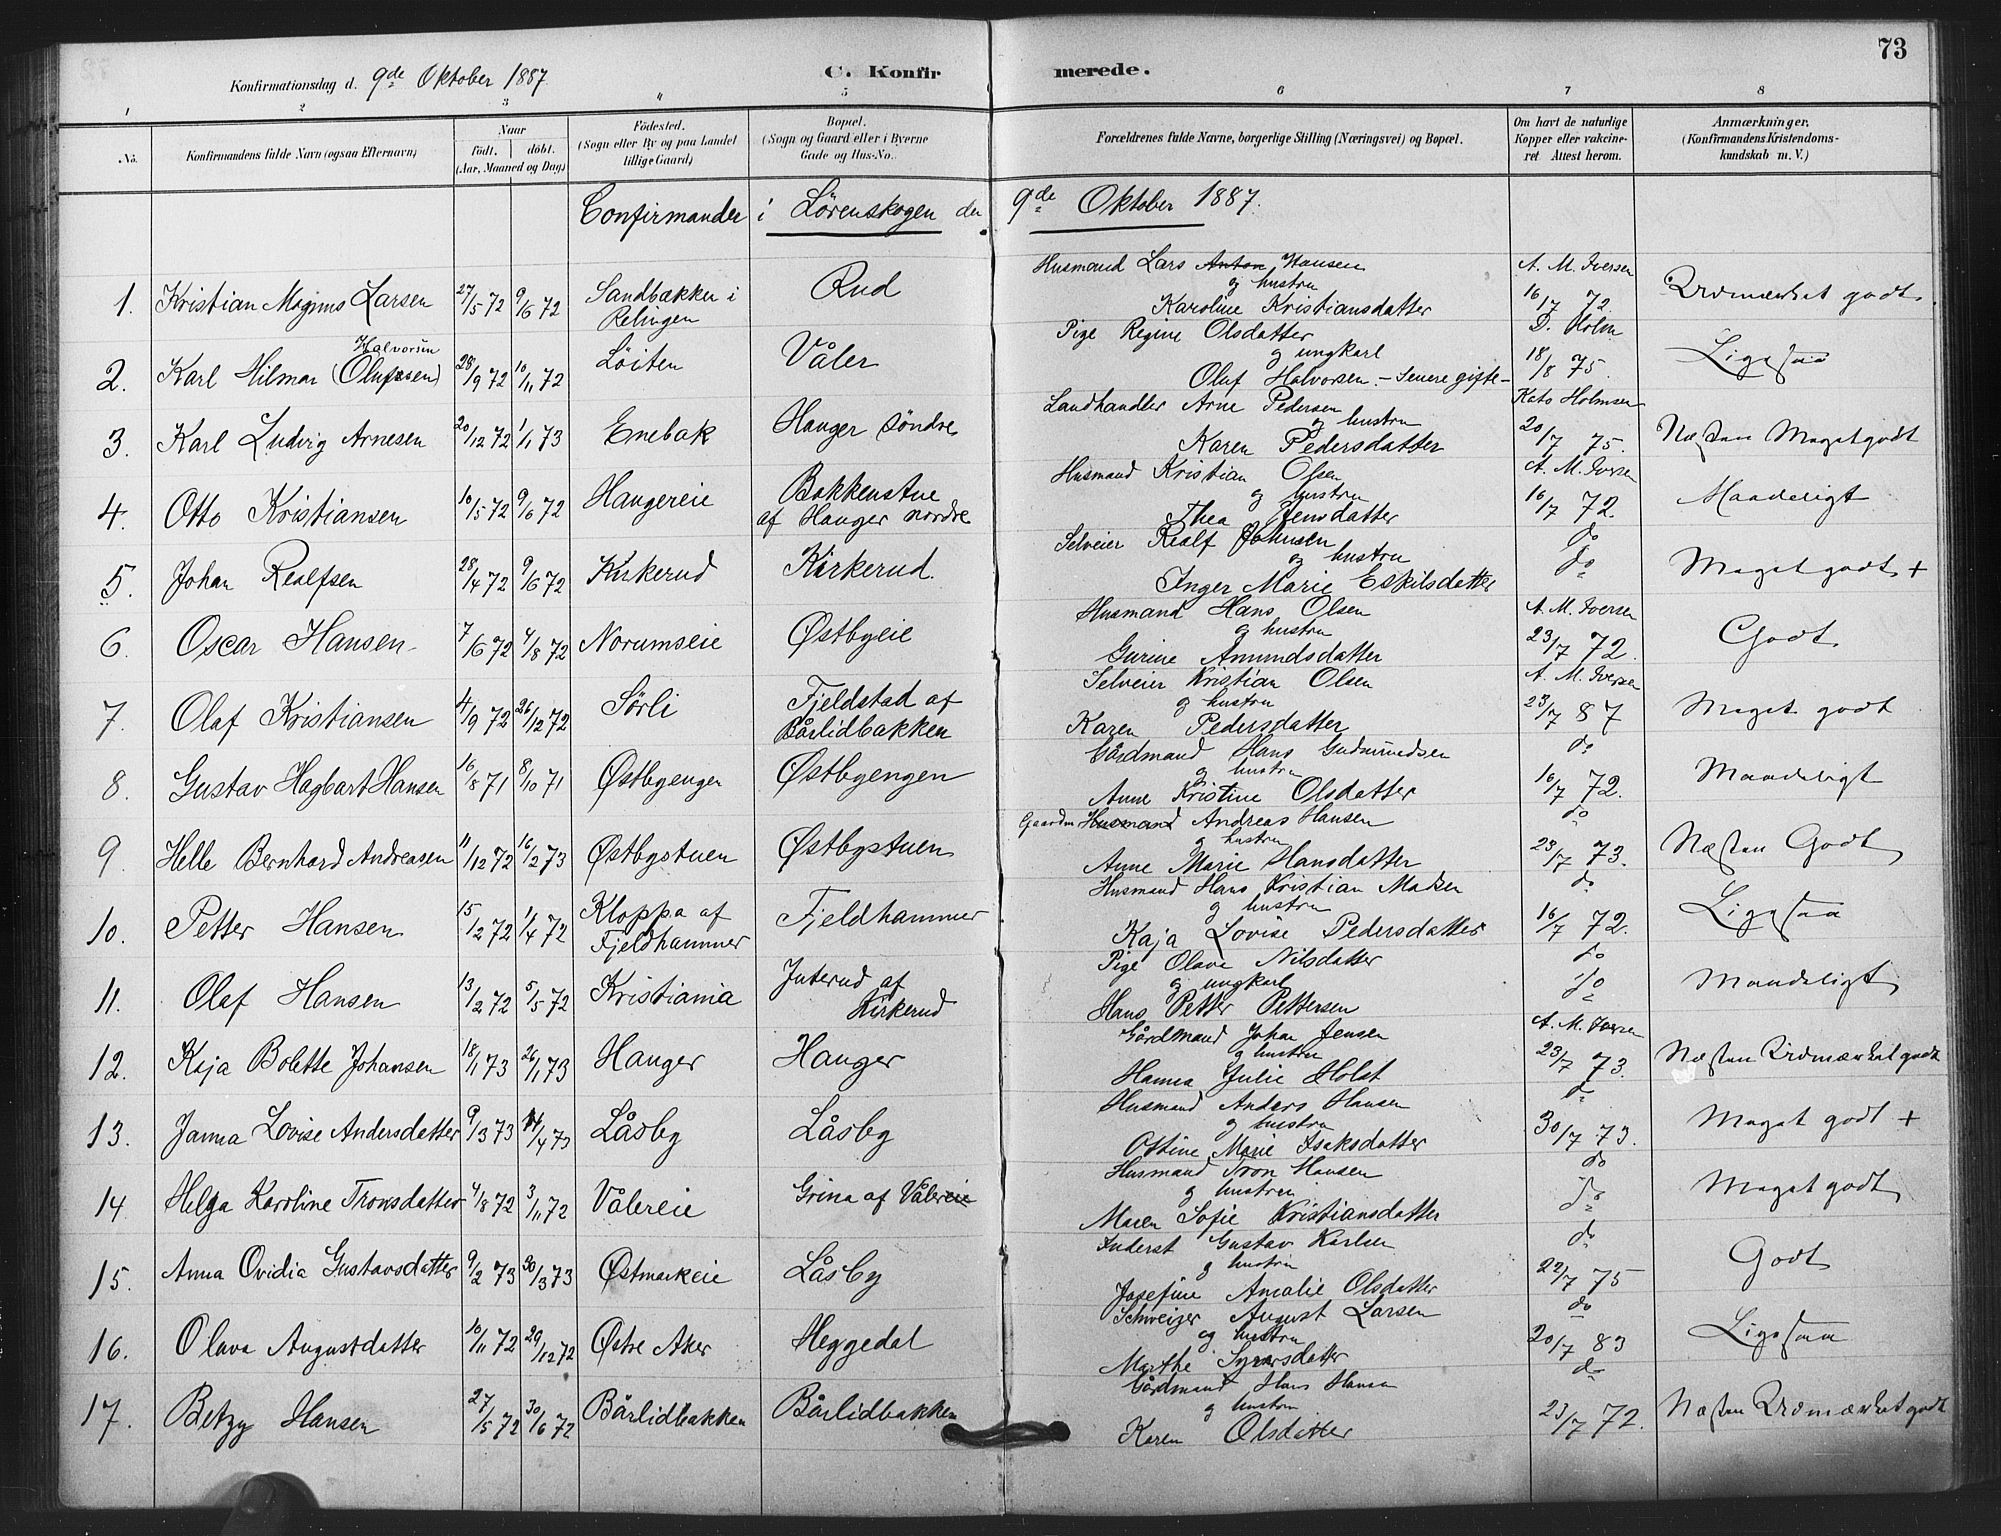 73
Konfirmationsdag d. 9de Oktober 1887
C. Konfirmerede.
1 2 3 4 5 6 7 8
No. Konfirmandens fulde Navn (ogsaa Efternavn)
Naar födt. döbt. (Aar, Maaned og Dag)
Födested. (Sogn eller By og paa Landet tillige Gaard)
Bopæl. (Sogn og Gaard eller i Byerne Gade og Hus-No.
Forældrenes fulde Navne, borgerlige Stilling (Næringsvei) og Bopæl.
Om havt de naturlige Kopper eller vakcineret Attest herom.
Anmærkninger. (Konfirmandens Kristendomskundskab m. V.)
Confirmander i Lörenskogen den 9de Oktober 1887.
Husmand Lars Anton Hansen A. M. Iversen
1. Kristian Magnus Larsen 27/5 72 9/6 72 Sandbækken i Relingen Rud og hustru Karoline Kristiansdatter 16/7 72 Udmærket godt
Pige Regine Olsdatter D. Holm
2. Karl Hilmar Halvorsen (Olufsen) 28/9 72 10/11 72 Löiten Våler og ungkarl Oluf Halvorsen. - Senere gifte - 18/8 75. Ligesaa
Landhandler Arne Pedersen Kato Holmsen
3. Karl Ludvig Arnesen 20/12 72 1/1 73 Enebak Hauger söndre og hustru Karen Pedersdatter 20/7 75. Næsten Meget godt
Husmand Kristian Olsen A. M. Iversen
4. Otto Kristiansen 10/5 72 9/6 72 Haugereie Bakkenstue af Hauger nordre og hustru Thea Jensdatter 16/7 72. Maadeligt
Selveier Realf Johnsen do
5. Johan Realfsen 28/4 72 9/6 72 Kirkerud Kirkerud. og hustru Inger Marie Eskilsdatter do Meget godt +
Husmand Hans Olsen A. M. Iversen
6. Oscar Hansen 7/6 72 4/8 72 Norumseie Östbyeie og hustru Gurine Amundsdatter 23/7 72. Godt
Selveier Kristian Olsen A. M. Iversen
7. Olaf Kristiansen 4/9 72 26/12 72 Sörli Fjeldstad af Bårlidbakken og hustru Karen Pedersdatter 23/7 87 Meget godt
Gårdmand Hans Gudmundsen do
8. Gustav Hagbart Hansen 16/8 71 8/10 71 Östbyengen Östbyengen og hustru Anne Kristine Olsdatter 16/7 72. Maadeligt
Gaardm Husmand Andreas Hansen do
9 Helle Bernhard Andreasen 11/12 72 16/2 73 Östbystuen Östbystuen og hustru Anne Marie Hansdatter 23/7 73. Næsten Godt
Husmand Hans Kristian Madsen do
10. Petter Hansen 15/2 72 1/4 72 Kloppa af Fjeldhammer Fjeldhammer og hustru Kaja Lovise Pedersdatter 16/7 72. Ligesaa
Pige Olave Nilsdatter do
11. Olaf Hansen 13/2 72 5/5 72 Kristiania Juterud af Kirkerud og ungkarl Hans Petter Pettersen do Maadeligt
Gårdmand Johan Jensen A. M. Iversen
12. Kaja Bolette Johansen 18/1 73 26/1 73 Hauger Hauger og hustru Hanna Julie Holst 23/7 73. Næsten Udmærket godt
Husmand Anders Hansen do
13. Janna Lovise Andersdatter 9/3 73 14/4 73 Låsby Låsby og hustru Ottine Marie Isaksdatter 30/7 73. Meget godt +
Husmand Tron Hansen do
14 Helga Karoline Tronsdatter 4/8 72 3/11 72 Vålereie Grina af Vålereie og hustru Maren Sofie Kristiansdatter do Meget godt
Inderst Gustav Karlsen do
15. Anna Ovidia Gustavsdatter 9/2 73 30/3 73 Östmarkeie Låsby og hustru Josefine Amalie Olsdatter 22/7 75 Godt
Schweizer August Larsen do
16. Olava Augustdatter 10/11 72 29/12 72 Östre Aker Heggedal og hustru Marthe Syversdatter 20/7 83 Ligesaa
Gårdmand Hans Hansen do
17. Betzy Hansen 27/5 72 30/6 72 Bårlidbakken Bårlidbakken og hustru Karen Olsdatter 23/7 72. Næsten Udmærket godt